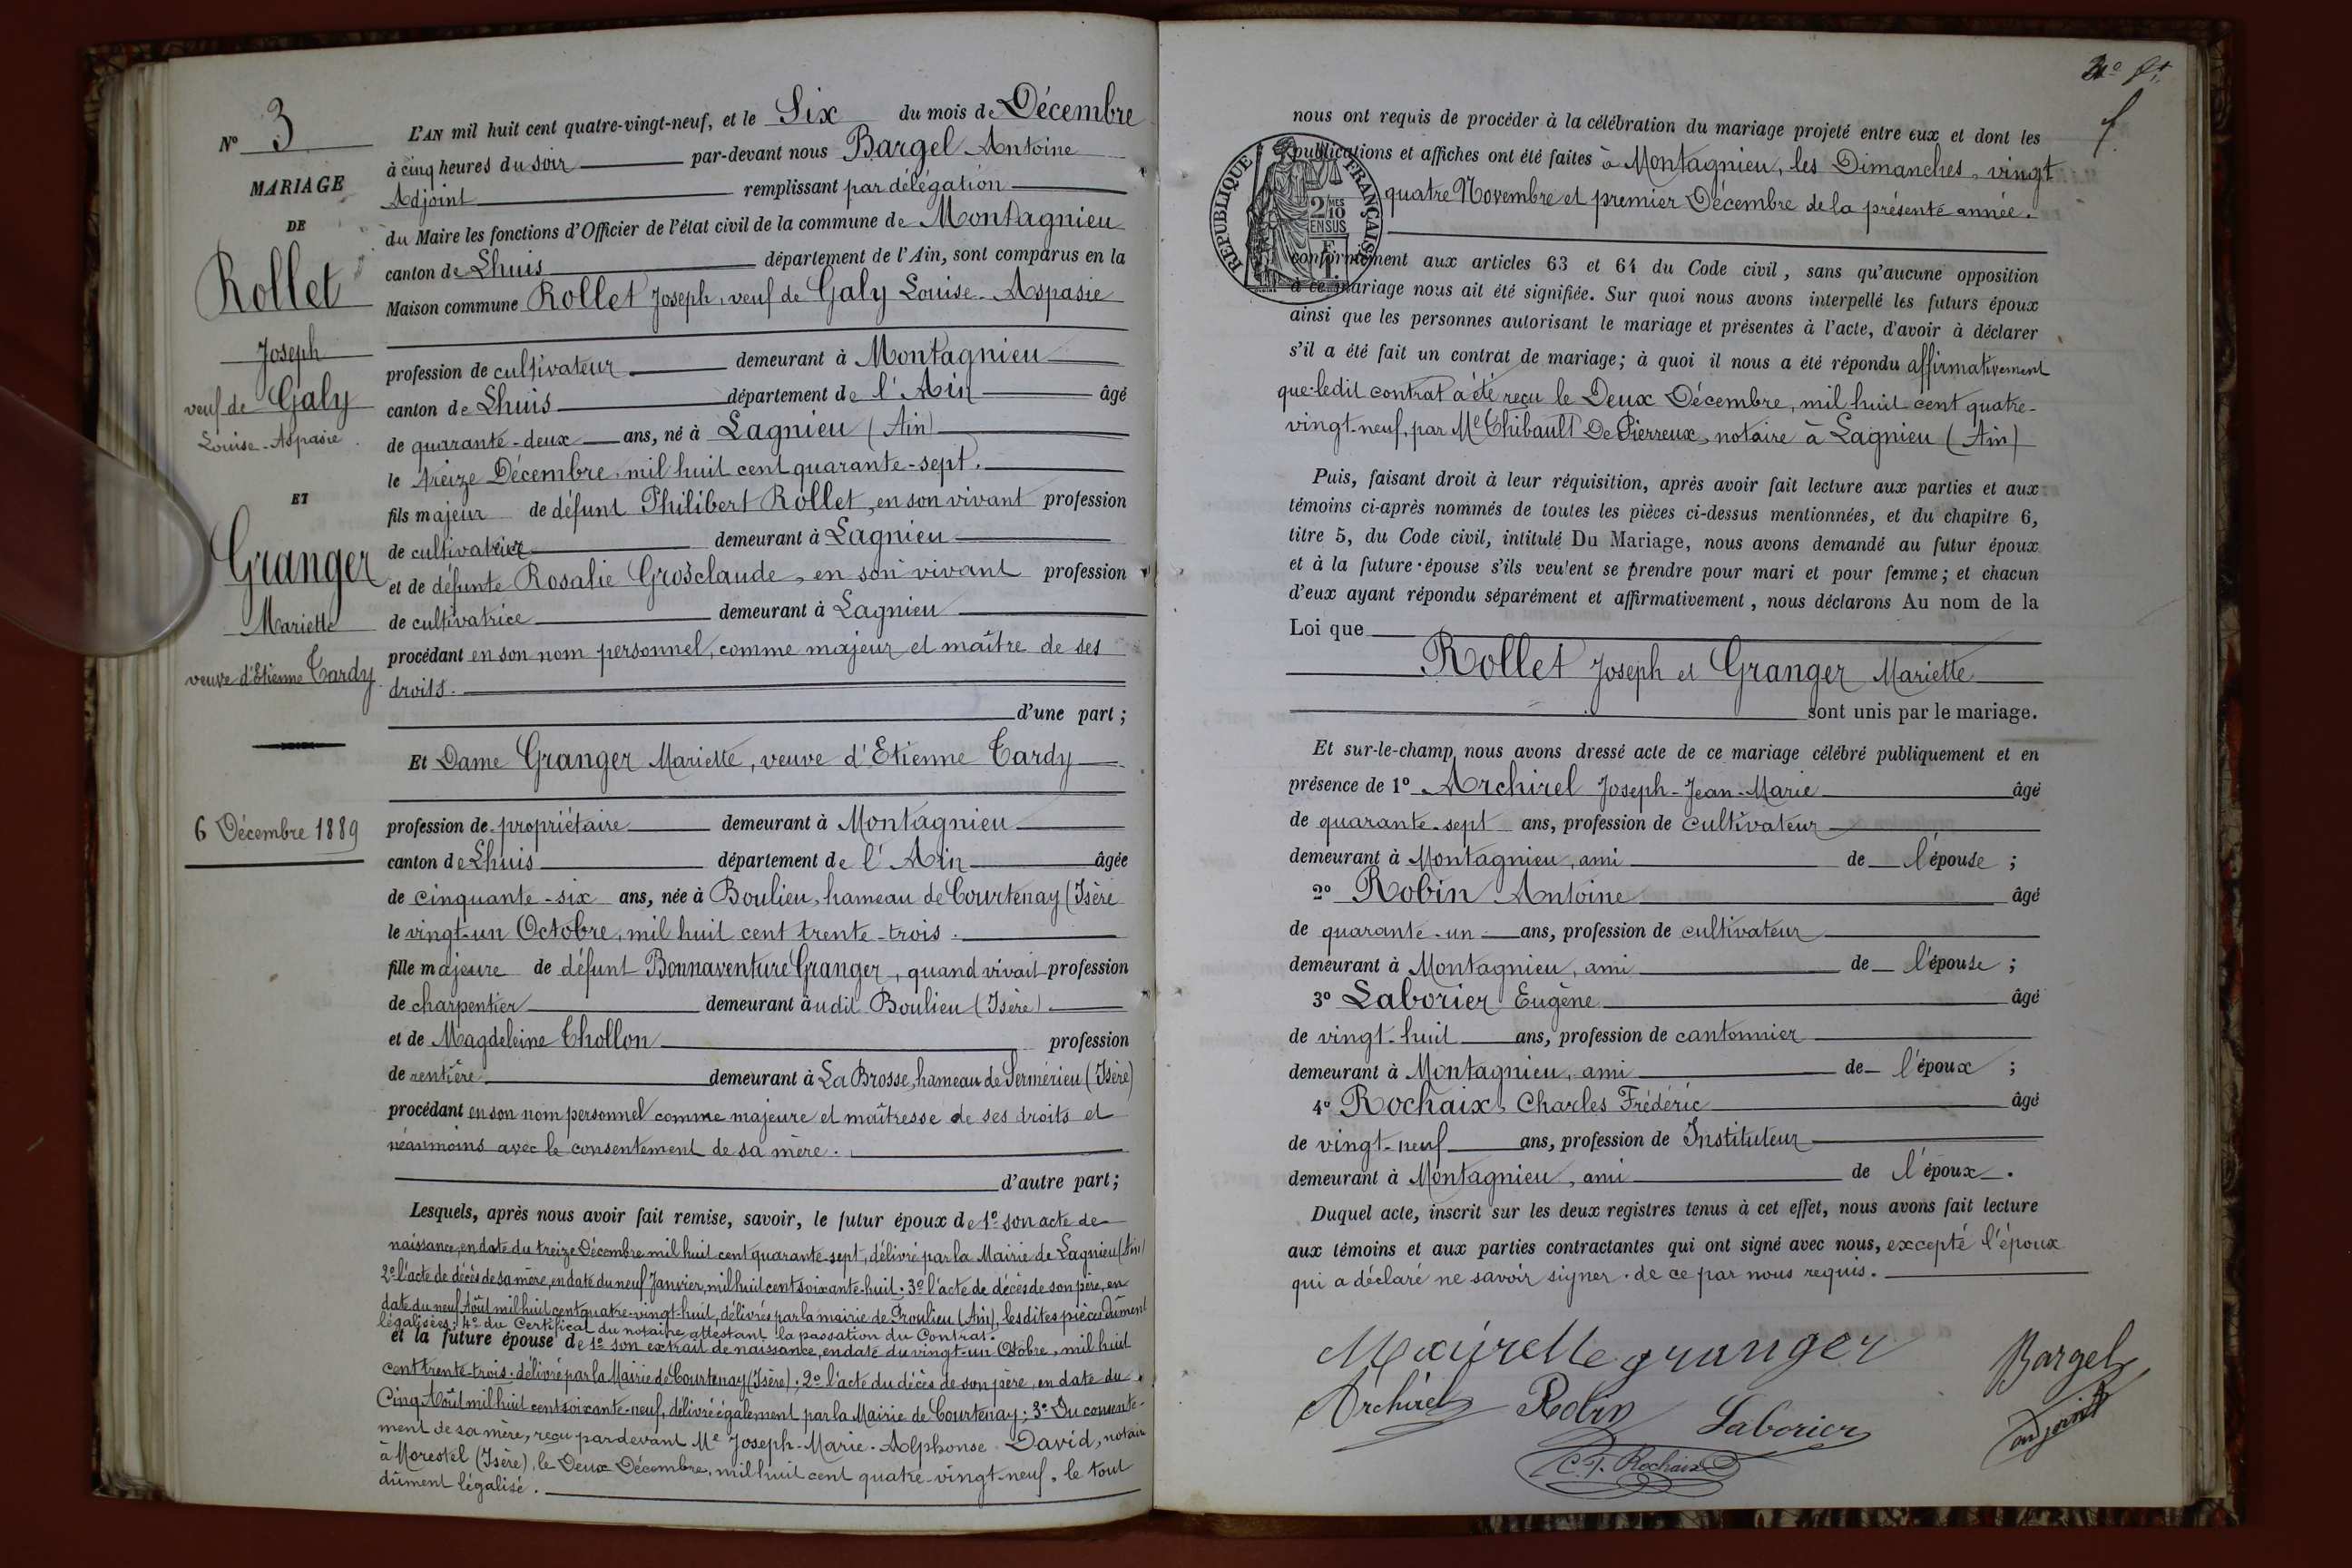 N° 3
MARIAGE
DE
Rollet
Joseph
veuf de Galy
Louise-Aspasie
ET
Granger
Mariette
veuve d'Etienne Tardy
6 Décembre 1889
L'AN mil huit cent quatre-vingt-neuf, et le Six du mois de Décembre
à cinq heures du soir par-devant nous Bargel Antoine
Adjoint remplissant par délégation
du Maire les fonctions d'Officier de l'état civil de la commune de Montagnieu
canton de Lhuis département de l'Ain, sont comparus en la
Maison commune Rollet Joseph, veuf de Galy Louise-Aspasie
profession de cultivateur demeurant à Montagnieu
canton de Lhuis département de l'Ain âgé
de quarante-deux ans, né à Lagnieu (Ain)
le treize Décembre, mil huit cent quarante-sept.
fils majeur de défunt Philibert Rollet, en son vivant profession
de cultivateur demeurant à Lagnieu
et de défunte Rosalie Grosclaude, en son vivant profession
de cultivatrice demeurant à Lagnieu
procédant en son nom personnel, comme majeur et maître de ses
droits.
d'une part;
Et Dame Granger Mariette, veuve d'Etienne Tardy
profession de propriétaire demeurant à Montagnieu
canton de Lhuis département de l'Ain âgée
de cinquante-six ans, née à Boulieu, hameau de Courtenay (Isère
le vingt-un Octobre, mil huit cent trente-trois.
fille majeure de défunt Bonnaventure Granger, quand vivait profession
de charpentier demeurant audit Boulieu (Isère)
et de Magdeleine Thollon profession
de rentière demeurant à La Brosse, hameau de Sermérieu (Isère)
procédant en son nom personnel comme majeure et maîtresse de ses droits et
néanmoins avec le consentement de sa mère.
d'autre part;
Lesquels, après nous avoir fait remise, savoir, le futur époux de 1° son acte de
naissance, en date du treize Décembre mil huit cent quarante-sept, délivré par la Mairie de Lagnieu (Ain)
2° l'acte de décès de sa mère, en date du neuf Janvier, mil huit cent soixante-huit. 3° l'acte de décès de son père, en
date du neuf Août mil huit cent quatre-vingt-huit, délivrés par la mairie de Proulieu (Ain), lesdites pièces dûment
légalisées; 4° du Certificat du notaire attestant la passation du Contrat.
et la future épouse de 1° son extrait de naissance, en date du vingt-un Octobre, mil huit
cent trente-trois. délivré par la Mairie de Courtenay (Isère); 2° l'acte du décès de son père, en date du
Cinq Août mil huit cent soixante-neuf, délivré également par la Mairie de Courtenay; 3° Du consente-
ment de sa mère, reçu pardevant Me Joseph-Marie-Alphonse David, notaire
à Morestel (Isère), le Deux Décembre, mil huit cent quatre-vingt-neuf, le tout
dûment légalisé.
nous ont requis de procéder à la célébration du mariage projeté entre eux et dont les
publications et affiches ont été faites à Montagnieu, les Dimanches, vingt
quatre Novembre et premier Décembre de la présente année.
RÉPUBLIQUE FRANÇAISE
2 MES
10
EN SUS
conformément aux articles 63 et 64 du Code civil, sans qu'aucune opposition
à ce mariage nous ait été signifiée. Sur quoi nous avons interpellé les futurs époux
ainsi que les personnes autorisant le mariage et présentes à l'acte, d'avoir à déclarer
s'il a été fait un contrat de mariage; à quoi il nous a été répondu affirmativement
que ledit contrat a été reçu le Deux Décembre, mil huit cent quatre-
vingt-neuf, par Me Thibault De Pierreux, notaire à Lagnieu (Ain)
Puis, faisant droit à leur réquisition, après avoir fait lecture aux parties et aux
témoins ci-après nommés de toutes les pièces ci-dessus mentionnées, et du chapitre 6,
titre 5, du Code civil, intitulé Du Mariage, nous avons demandé au futur époux
et à la future épouse s'ils veulent se prendre pour mari et pour femme; et chacun
d'eux ayant répondu séparément et affirmativement, nous déclarons Au nom de la
Loi que
Rollet Joseph et Granger Mariette
sont unis par le mariage.
Et sur-le-champ nous avons dressé acte de ce mariage célébré publiquement et en
présence de 1° Archirel Joseph-Jean-Marie âgé
de quarante-sept ans, profession de cultivateur
demeurant à Montagnieu, ami de l'épouse;
2° Robin Antoine âgé
de quarante-un ans, profession de cultivateur
demeurant à Montagnieu, ami de l'épouse;
3° Laborier Eugène âgé
de vingt-huit ans, profession de cantonnier
demeurant à Montagnieu, ami de l'époux;
4° Rochaix, Charles Frédéric âgé
de vingt-neuf ans, profession de Instituteur
demeurant à Montagnieu, ami de l'époux.
Duquel acte, inscrit sur les deux registres tenus à cet effet, nous avons fait lecture
aux témoins et aux parties contractantes qui ont signé avec nous, excepté l'époux
qui a déclaré ne savoir signer de ce par nous requis.
Mairette granger
Bargel
Archirel Robin Laborier
adjoint
C. F. Rochaix